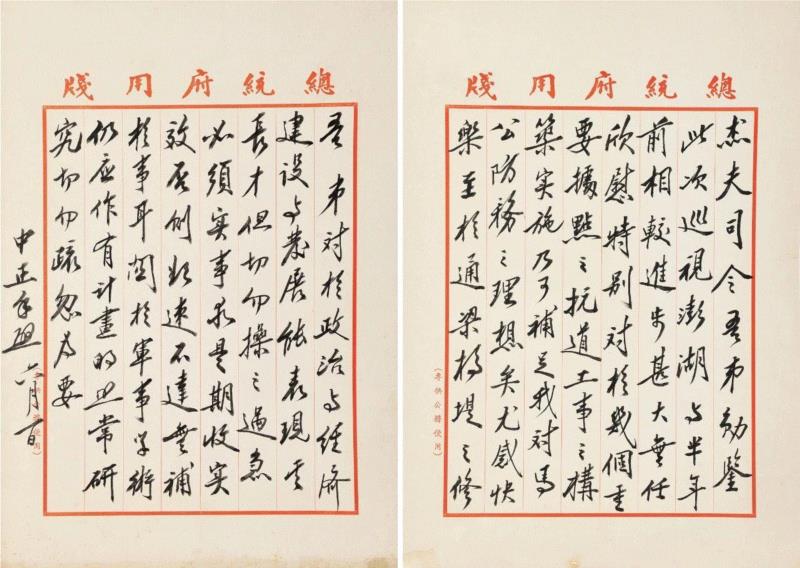 總統府用牋
杰夫司令吾弟勛鑒
此次巡視澎湖与半年
前相較進步甚大無任
欣慰特別對於幾個重
要據點之坑道工事之構
築實施乃可補足我對馬
公防務之理想矣尤感快
樂至於通梁橋堤之修
(專供公務使用)
總統府用牋
吾弟對於政治与經濟
建設与發展能表現其
長才但切勿操之過急
必須實事求是期收實
效否則欲速不達無補
於事耳關於軍事學術
仍應作有計畫的日常研
究切勿疏忽為要
中正手啟 六月